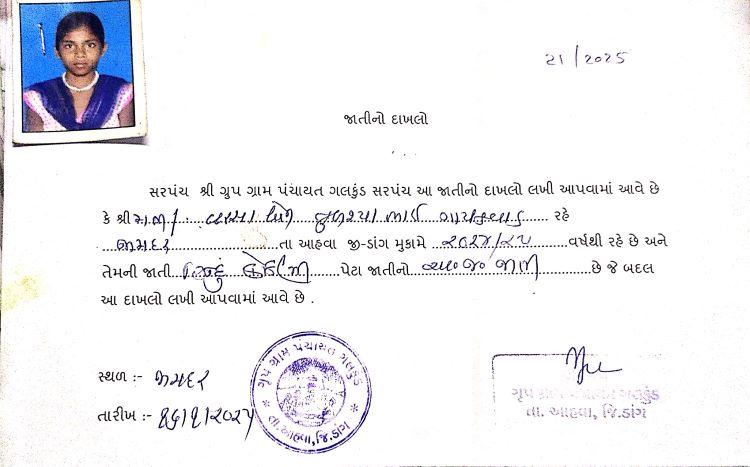 21/2025
જાતીનો દાખલો
સરપંચ શ્રી ગ્રુપ ગ્રામ પંચાયત ગલકુંડ સરપંચ આ જાતીનો દાખલો લખી આપવામાં આવે છે
કે શ્રી ગાયકવાડ રહે
જામદર તા આહવા જી-ડાંગ મુકામે ૨૦૨૪/૨૫ વર્ષથી રહે છે અને
તેમની જાતી હિન્દુ પેટા જાતીનો છે જે બદલ
આ દાખલો લખી આપવામાં આવે છે .
સ્થળ :- જામદર
તારીખ :-
ગૃપ ગ્રામ પંચાયત ગલકુંડ
તા. આહવા, જિ. ડાંગ
ગૃપ ગ્રામ પંચાયત ગલકુંડ
તા. આહવા, જિ. ડાંગ